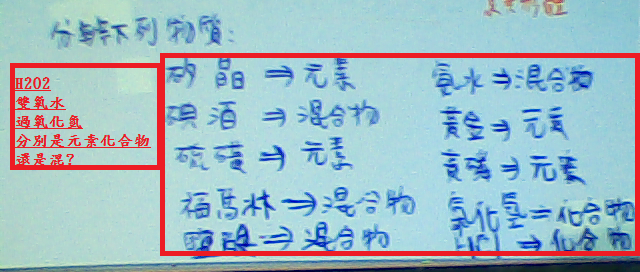 分辨下列物質:
H2O2
雙氧水
過氧化氫
分別是元素化合物
還是混?
矽晶→元素
碘酒→混合物
硫磺→元素
福馬林→混合物
→混合物
氨水→混合物
黃金→元素
黃磷→元素
氯化氫=化合物
→化合物